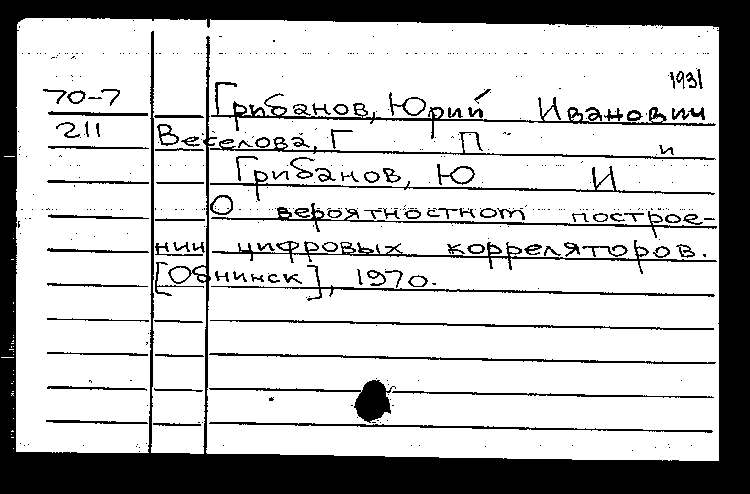 1931
70-7 Грибанов, Юрий Иванович
211 Веселова, Г П и
Грибанов, Ю И
О вероятностном построе-
нии цифровых корреляторов.
[Обнинск], 1970.